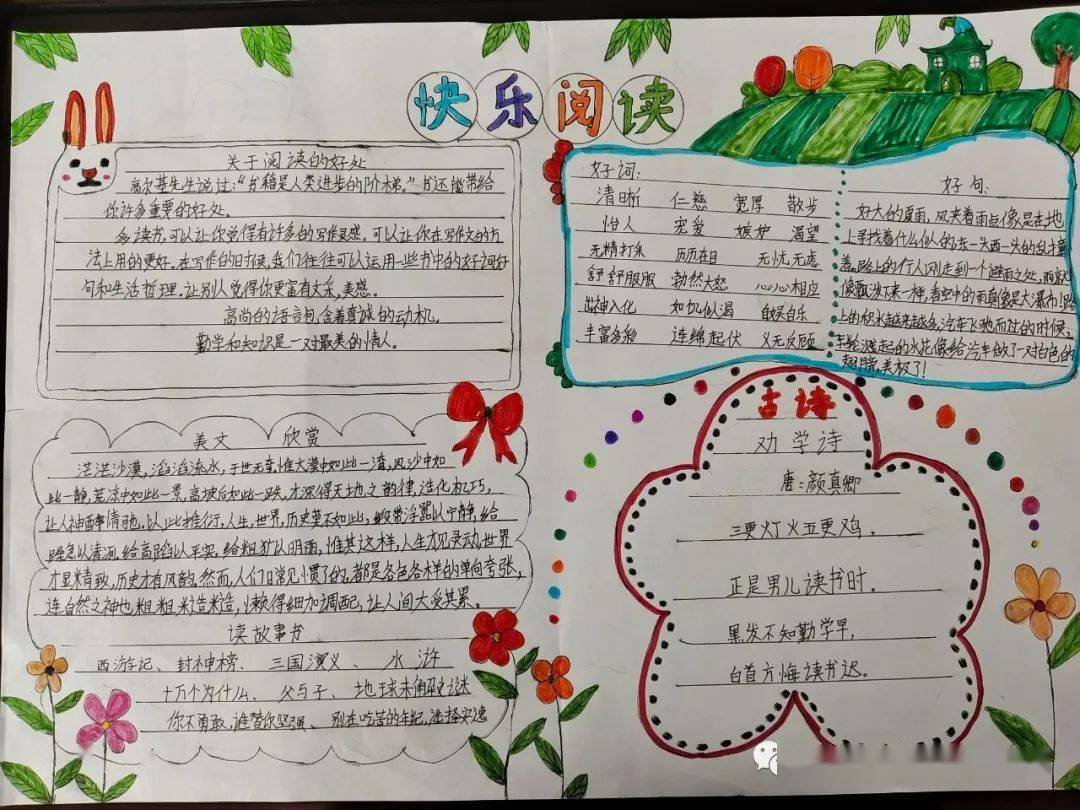 快乐阅读
关于阅读的好处
高尔基先生说过:“书籍是人类进步的阶梯。”书还能带给
你许多重要的好处。
多读书,可以让你觉得有许多的写作灵感。可以让你在写作文的方
法上用的更好。在写作的时候,我们往往可以运用一些书中的好词好
句和生活哲理。让别人觉得你更富有文采,美感。
高尚的语言包含着真诚的动机。
勤学和知识是一对最美的情人。
好词:
清晰 仁慈 宽厚 散步
怡人 宠爱 嫉妒 渴望
无精打采 历历在目 无忧无虑
舒舒服服 勃然大怒 心心相应
出神入化 如饥似渴 自娱自乐
丰富多彩 连绵起伏 义无反顾
好句:
好大的夏雨,风夹着雨自像是在地
上寻找着什么似的东一头西一头的乱撞
着。路上的行人刚走到一个避雨之处,雨就
像瓢泼下来一样,看空中的雨真像是大瀑布!路
上的积水越来越多,汽车飞驰而过的时候,
车轮溅起的水花像给汽车做了一对白色的
翅膀,美极了!
美文 欣赏
茫茫沙漠,滔滔流水,于世无奇。惟大漠中如此一湾,风沙中如
此一静,荒凉中如此一景,高坡后如此一跌,才深得天地之韵律,造化机巧,
让人神醉情驰。以此推衍,人生,世界,历史莫不如此,给浮嚣以宁静,给
躁急以清冽,给高蹈以平实,给粗犷以明丽,惟其这样,人生才见灵动,世界
才显精致,历史才有风韵。然而,人们日常见惯了的,都是各色各样的单向夸张,
连自然之神也粗粗糙糙,懒得细加调配,让人间大受其累。
读故事书
西游记、封神榜、三国演义、水浒
十万个为什么、父与子、地球未解之谜
你不勇敢,谁替你坚强、别在吃苦的年纪,选择安逸
古诗
劝学诗
唐:颜真卿
三更灯火五更鸡,
正是男儿读书时。
黑发不知勤学早,
白首方悔读书迟。